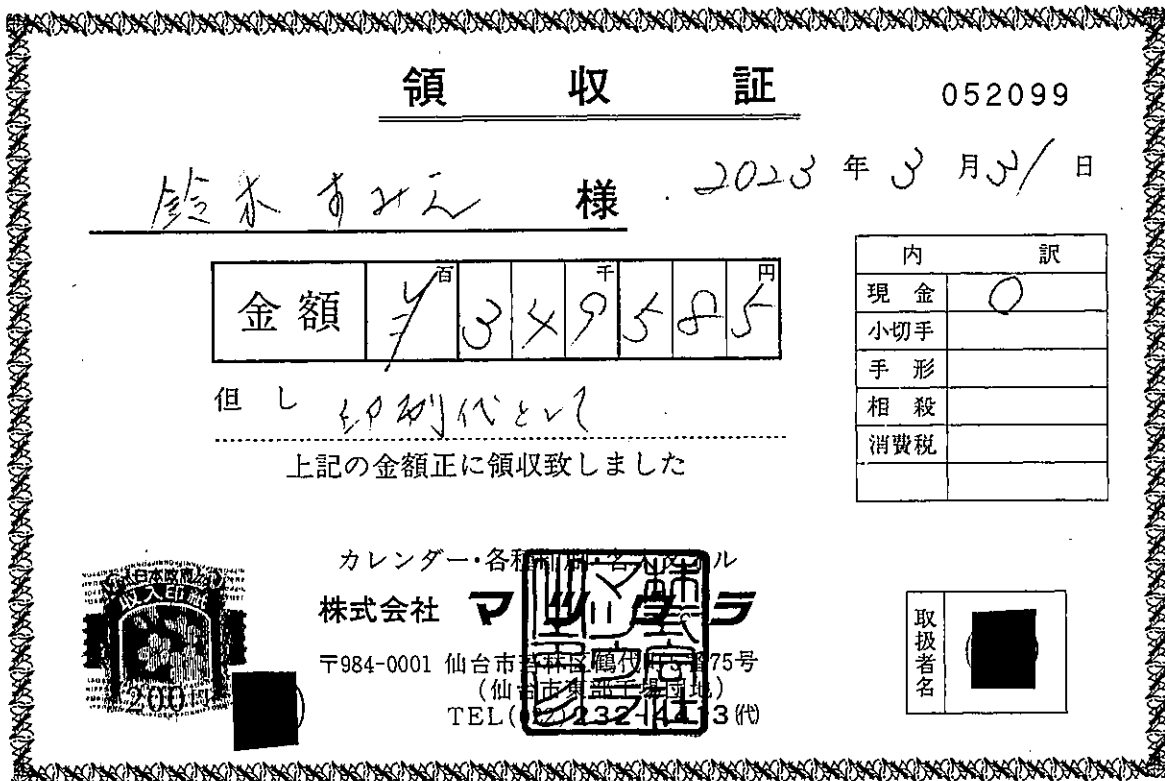 領収証
052099
鈴木すみえ 様
2023年3月31日
金額 百千円
¥349585
但し 印刷代として
上記の金額正に領収致しました
内訳
現金 ○
小切手
手形
相殺
消費税
カレンダー・各種
株式会社 マツ
〒984-0001 仙台市若林区鶴代町 75号
(仙台市東部工場団地)
TEL(022)232- 3(代)
日本政府
収入印紙
200円
取扱者名